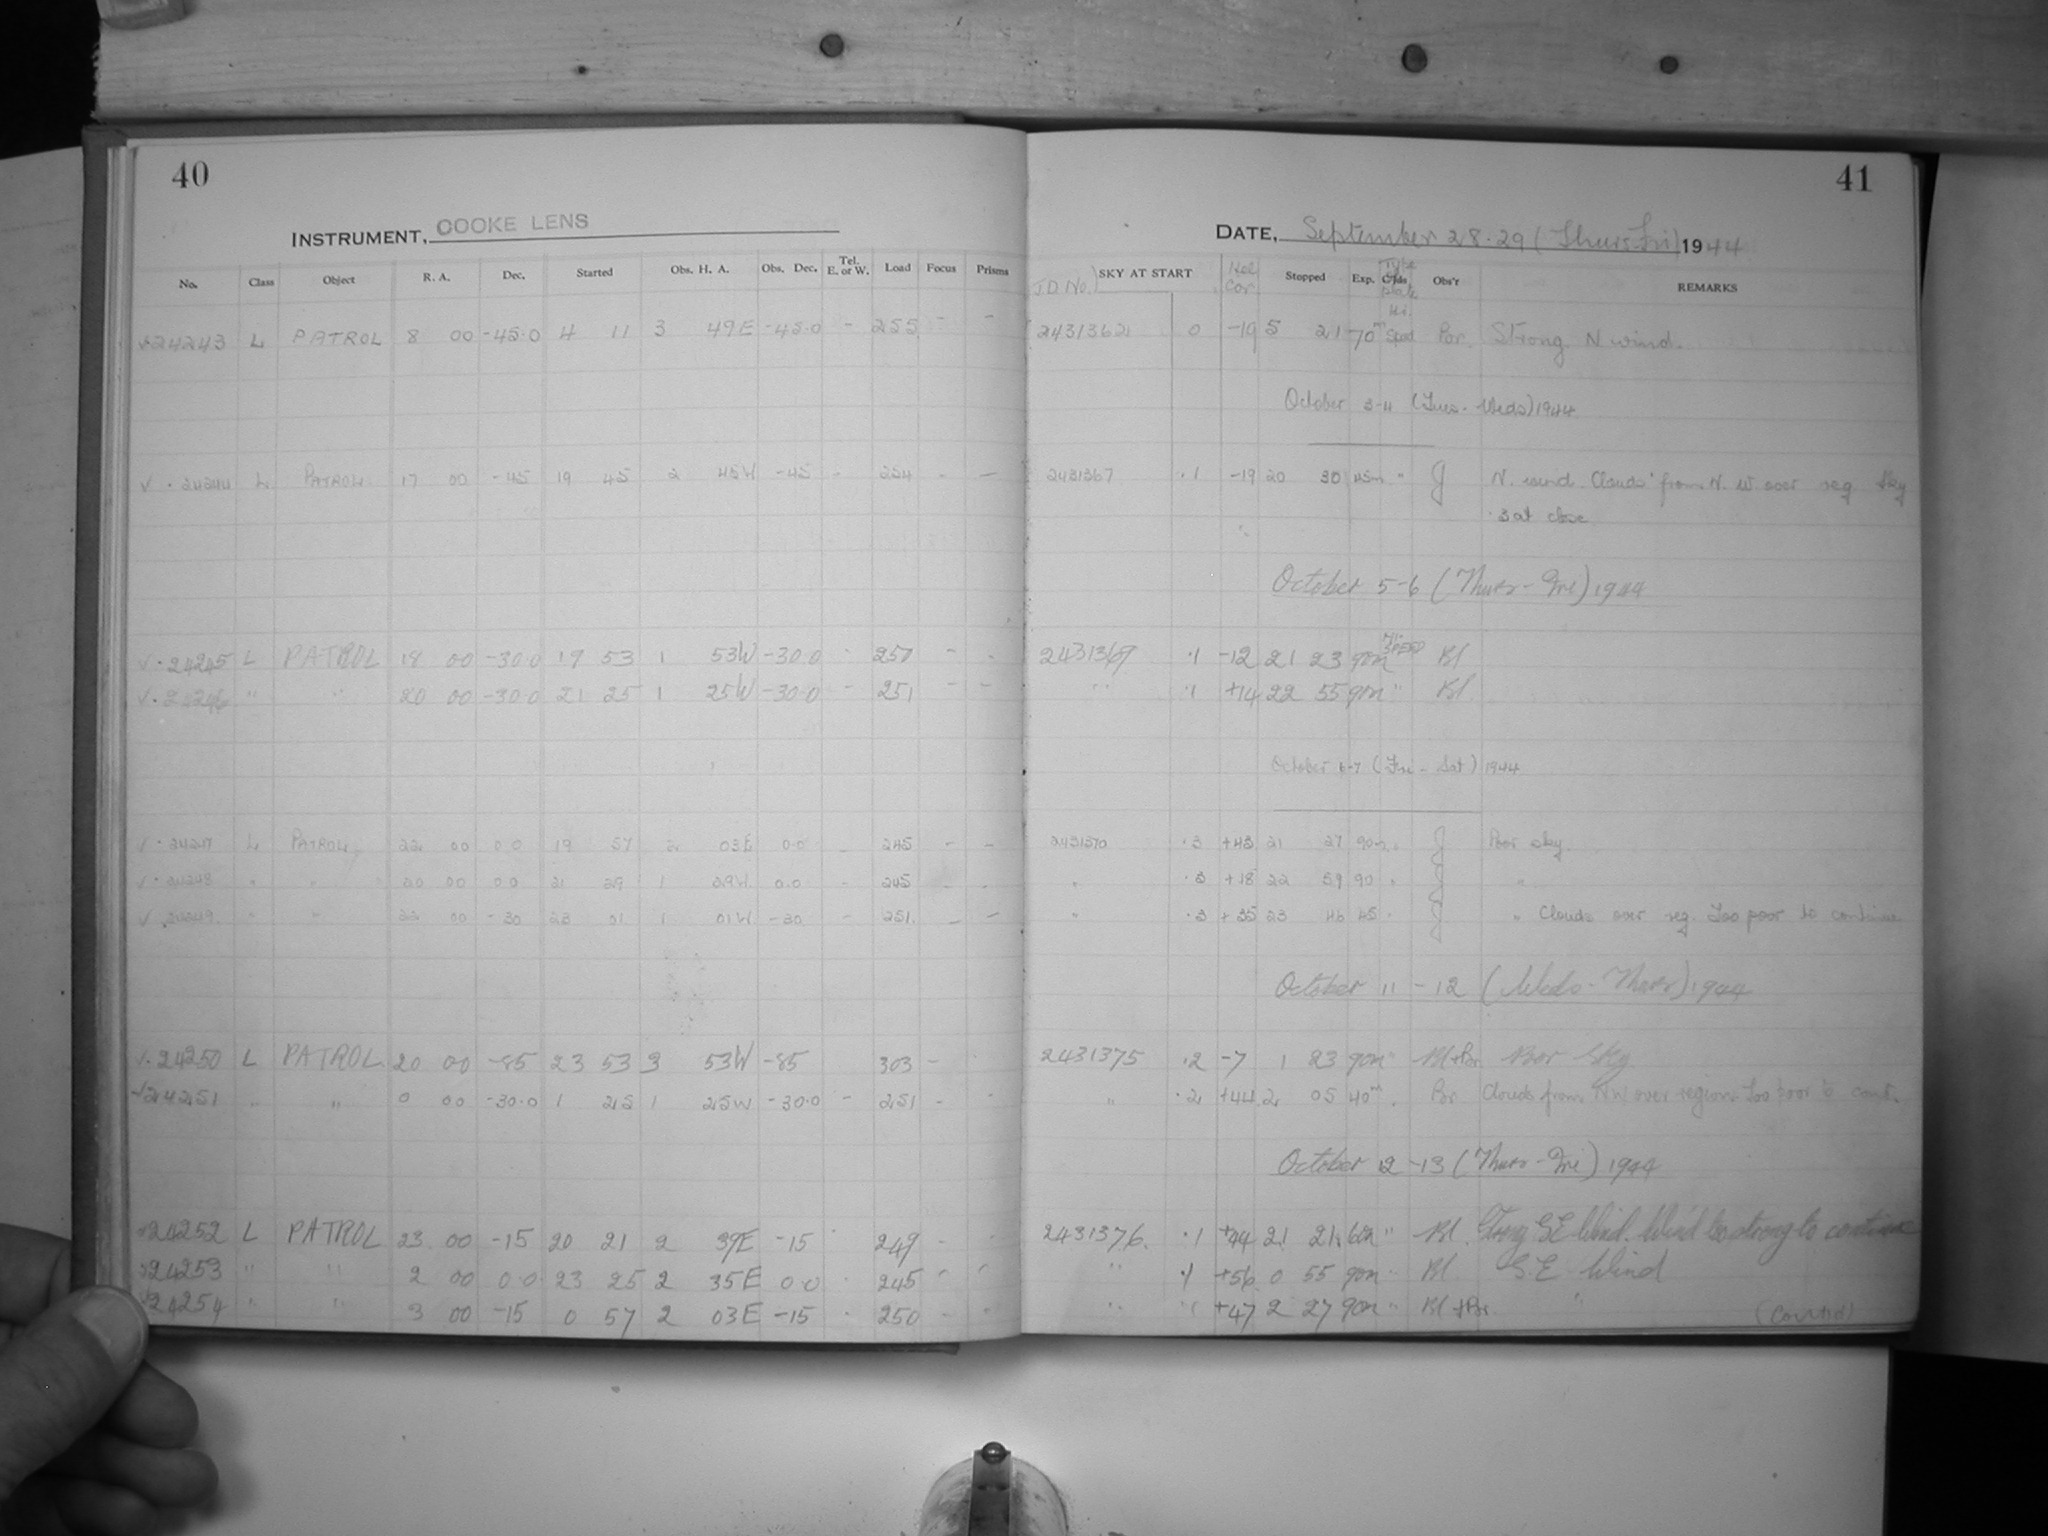 40
41
INSTRUMENT, COOKE LENS
DATE, September 28.29 (Thurs-Fri) 1944
No. Class Object R. A. Dec. Started Obs. H. A. Obs. Dec. Tel. E. or W. Load Focus Prisms J.D No. SKY AT START Hel Cor Stopped Exp. Type Plate Obs'r REMARKS
24243 L PATROL 8 00 -45.0 4 11 3 49E -45.0 - 255 - - 2431362 0 -19 5 21 70m Hi. Speed Por. Strong N wind.
October 3-4 (Tues-Weds) 1944
√ . 24244 L PATROL 17 00 -45 19 45 2 45W -45 - 254 - - 2431367 .1 -19 20 30 45m " J N. wind Clouds from N. W over reg Sky
.3 at close
October 5-6 (Thurs-Fri) 1944
√ . 24245 L PATROL 18 00 -30.0 19 53 1 53W -30.0 - 257 - - 2431369 .1 -12 21 23 90m Hi-SPEED Bl
√ . 24246 " " 20 00 -30.0 21 25 1 25W -30.0 - 251 - - " .1 +14 22 55 90m " Bl.
October 6-7 (Fri - Sat) 1944
√ . 24247 L PATROL 22 00 0.0 19 57 2 03E 0.0 - 245 - - 2431370 .3 +43 21 27 90m " J Poor sky.
√ . 24248 " " 20 00 0.0 21 29 1 29W 0.0 - 245 - - " .3 +18 22 59 90 " J "
√ . 24249 " " 22 00 -30 23 01 1 01W -30 - 251 - - " .3 +35 23 46 45 " J " Clouds over reg. Too poor to continue
October 11-12 (Weds-Thurs) 1944
√ . 24250 L PATROL 20 00 -85 23 53 3 53W -85 303 - 2431375 .2 -7 1 23 90m " Bl+Por Poor Sky
24251 " " 0 00 -30.0 1 25 1 25W -30.0 - 251 - - " .2 +44 2 05 40m " Por Clouds from NW over region. Too poor to cont.
October 12-13 (Thurs-Fri) 1944
24252 L PATROL 23 00 -15 20 21 2 39E -15 - 249 - - 2431376. .1 +44 21 21 60m " Bl. Strong S.E Wind. Wind too strong to continue
24253 " " 2 00 0.0 23 25 2 35E 0.0 - 245 - - " .1 +56 0 55 90m " Bl S.E. Wind
24254 " " 3 00 -15 0 57 2 03E -15 - 250 - - " .1 +47 2 27 90m " Bl+Por. "
(Contd)